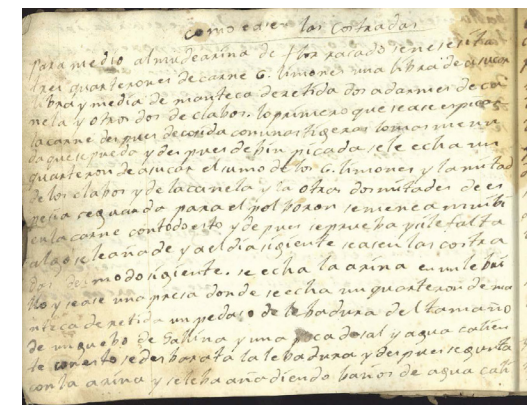 como çaser las costradas
para medio almud earina de flor rasado se nesesita
tres quarterones de carne 6. limones una libra de asucar
libra y media de manteca deretida dos adarmes de ca
nela y otros dos de clabos. lo primero que se ase es picar
la carne despues de cosida comunas tigeras lo mas menu
da que se pueda y despues de bien picada se le echa un
quarteron de asucar el sumo de los 6. limones y la mitad
de los clabos y de la canela y la otras dos mitades de es
pesia se guarda para el polboron se menea mui bi
en la carne con todo esto y despues se prueba y si le falta
algo se le añade y al dia sigiente se asen las costra
das del modo sigiente. se echa la arina en un lebri
llo y se ase una presa donde se echa un quarteron de ma
nteca deretida un pedaso de lebadura del tamaño
de un guebo de Gallina y una poca de sal y agua calien
te con esto se desbarata la lebadura y despues se gunta
con la arina y se le ba añadiendo baños de agua cali